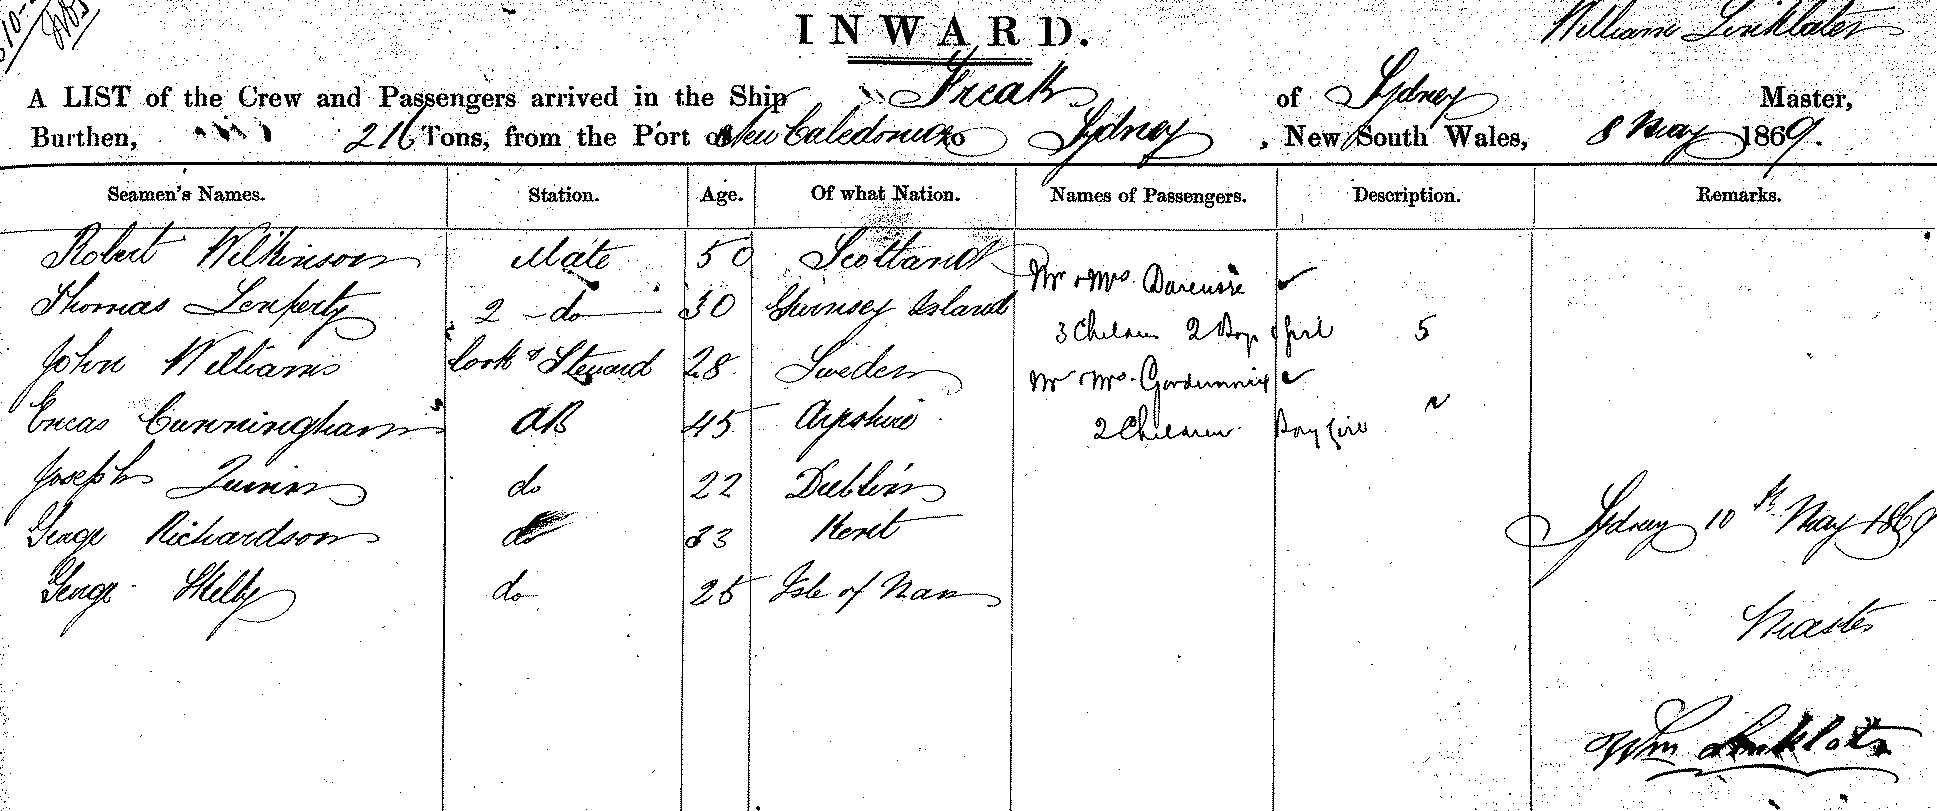 INWARD.
William Linklater
A LIST of the Crew and Passengers arrived in the Ship Freak of Sydney Master,
Burthen, 216 Tons, from the Port of New Caledonia to Sydney, New South Wales, 8 May 1869.
Seamen's Names. Station. Age. Of what Nation. Names of Passengers. Description. Remarks.
Robert Wilkinson Mate 50 Scotland
Mr & Mrs
Thomas 2 do 30 Gurnsey Island
3 Children 2 Boys & Girl 5
John Williams Cook & Steward 28 Sweden
Mr Mrs
Eneas Cunningham AB 45 Ayrshire
2 Children Boy Girl
Joseph Quinn do 22 Dublin
George Richardson do 33 Kent
Sydney 10th May 1869
George Skelby do 25 Isle of Man
Master
Wm Linklater